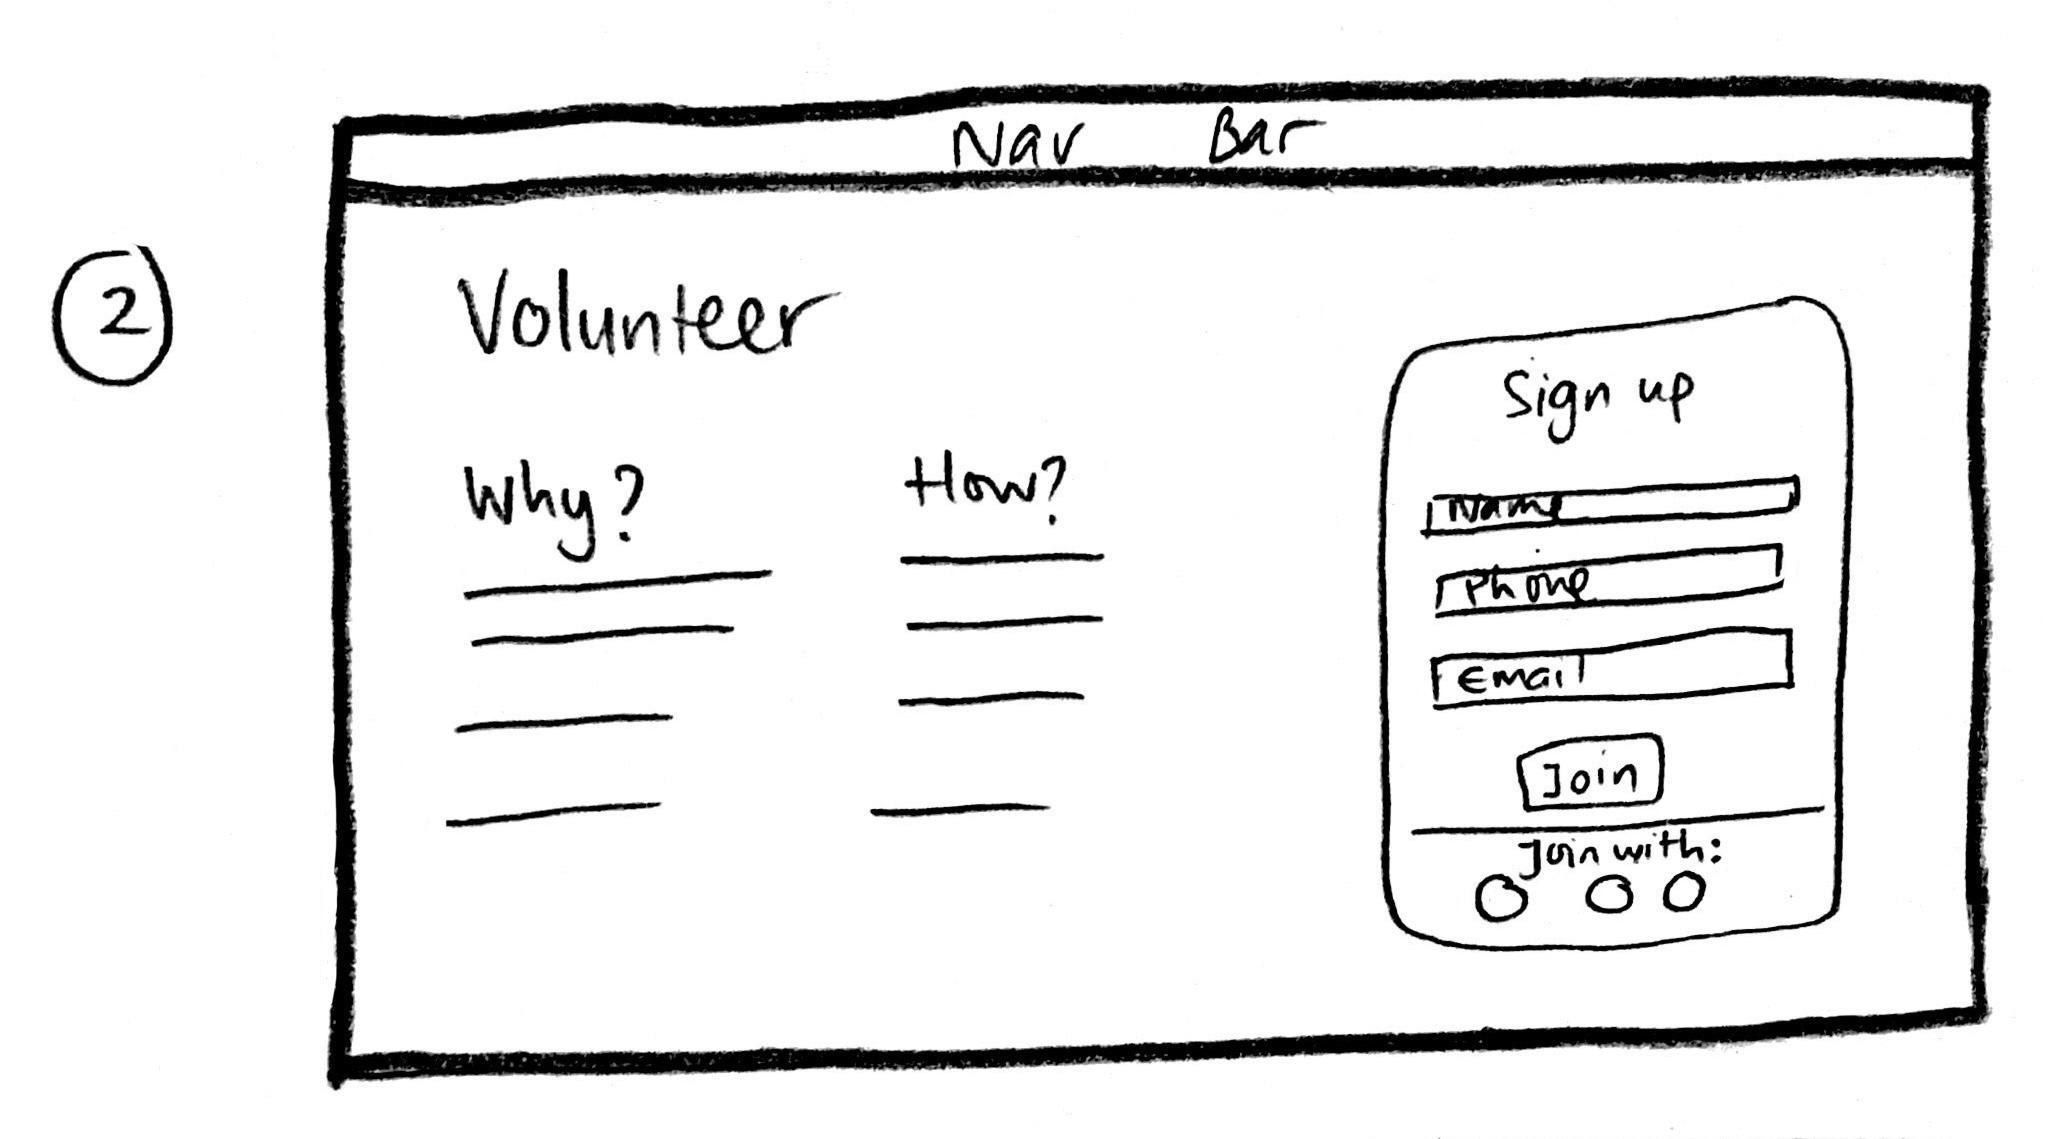 Nav Bar
2
Volunteer
Why?
How?
Sign up
Name
Phone
Email
Join
Join with: